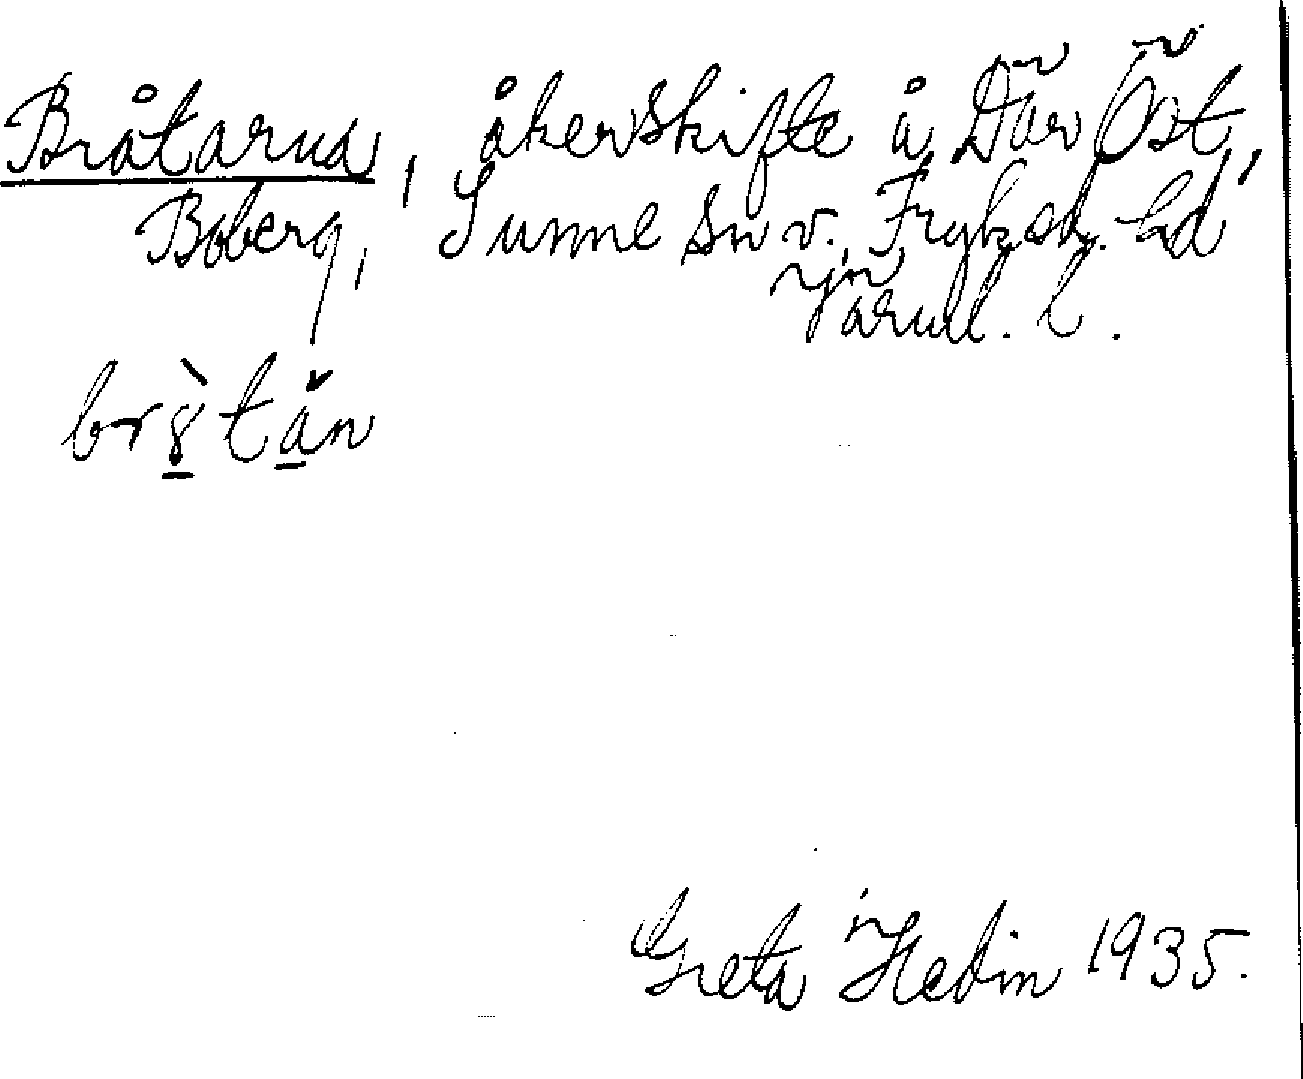 Bråtarna, åkerskifte å Där Öst,
Boberg, Sunne sn v. Fryksd. hd
Värml. l.
br8̀tăn
Greta Hedin 1935.